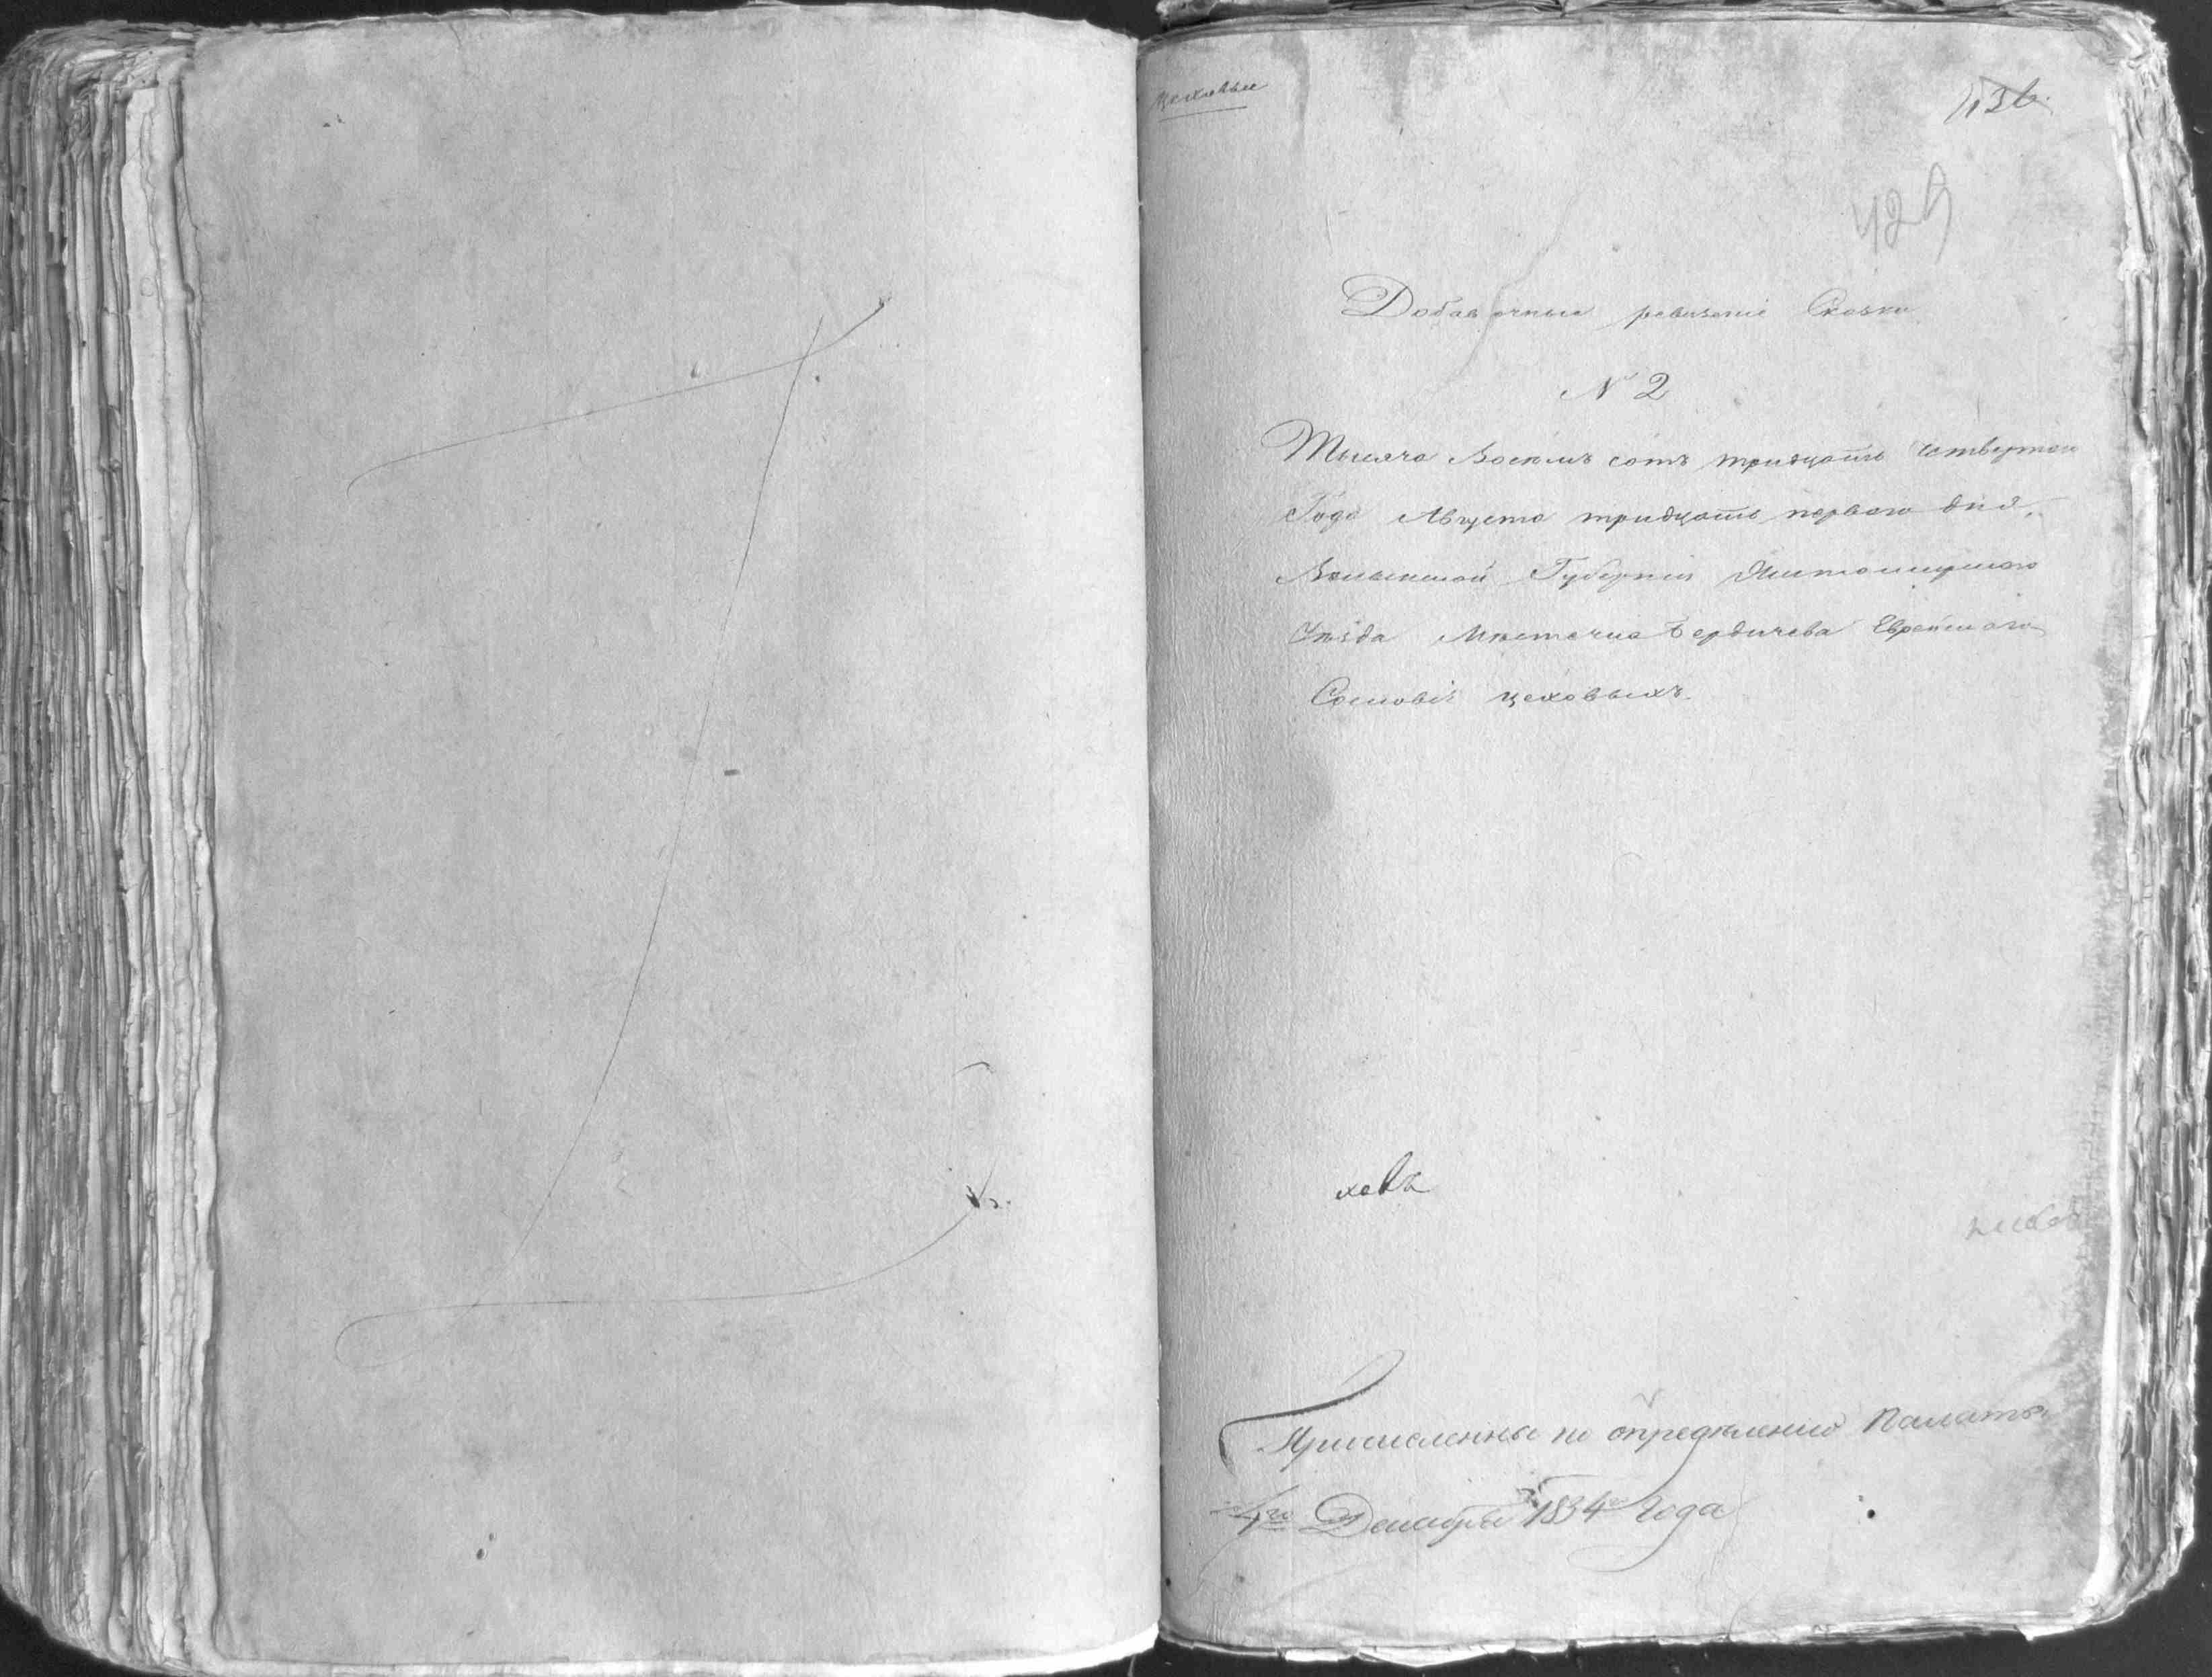 цеховые
429
Добавочные ревизскіе Сказки
№ 2
Тысяча Восемь сотъ тридцать четвертаго
Года Августа тридцать перваго дня,
Волынской Губерніи Житомирскаго
Уѣзда Мѣстечка Бердичева Еврейскаго
Сословія цеховыхъ.
ховъ
Причисленные по опредѣленію Палаты
Декабря 1834го Года